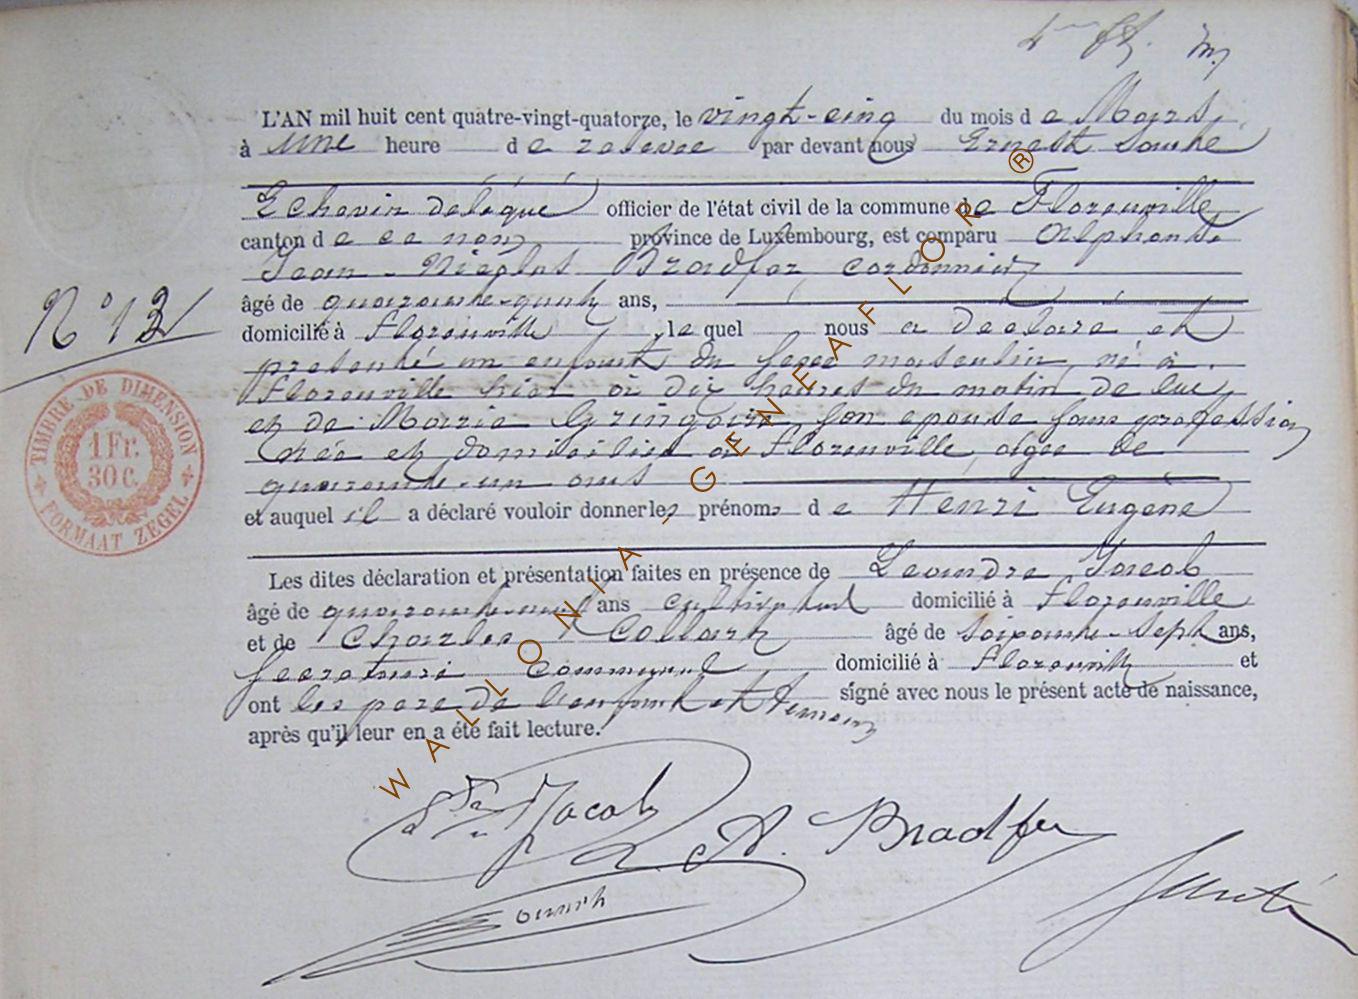 L'AN mil huit cent quatre-vingt-quatorze, le vingt-cinq du mois de Mars
à une heure de relevée par devant nous Ernest
Echevin délégué officier de l'état civil de la commune de Florenville
canton de ce nom province de Luxembourg, est comparu Alphonse
Jean-Nicolas Bradfer cordonnier
âgé de ans,
N° 12
domicilié à Florenville, lequel nous a déclaré et
présenté un enfant du sexe masculin, né à
Florenville hier à dix heures du matin de lui
et de Marie Gringoire son épouse sans profession
née et domiciliée à Florenville, âgée de
quarante-un ans
et auquel il a déclaré vouloir donner les prénoms de Henri Eugène
TIMBRE DE DIMENSION
1 Fr.
30 C.
FORMAAT ZEGEL
Les dites déclaration et présentation faites en présence de Jacob
âgé de ans cultivateur domicilié à Florenville
et de Charles Collart âgé de soixante-sept ans,
Secrétaire communal domicilié à Florenville et
ont les père de l'enfant et témoins signé avec nous le présent acte de naissance,
après qu'il leur en a été fait lecture.
Jacob
A. Bradfer
WALLONIA - GENEAFLOR ®